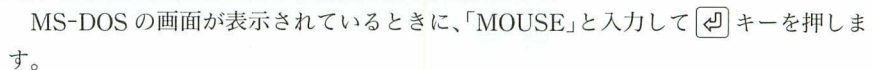 MS-DOS の画面が表示されているときに、「MOUSE」と入力して⏎キーを押しま
す。